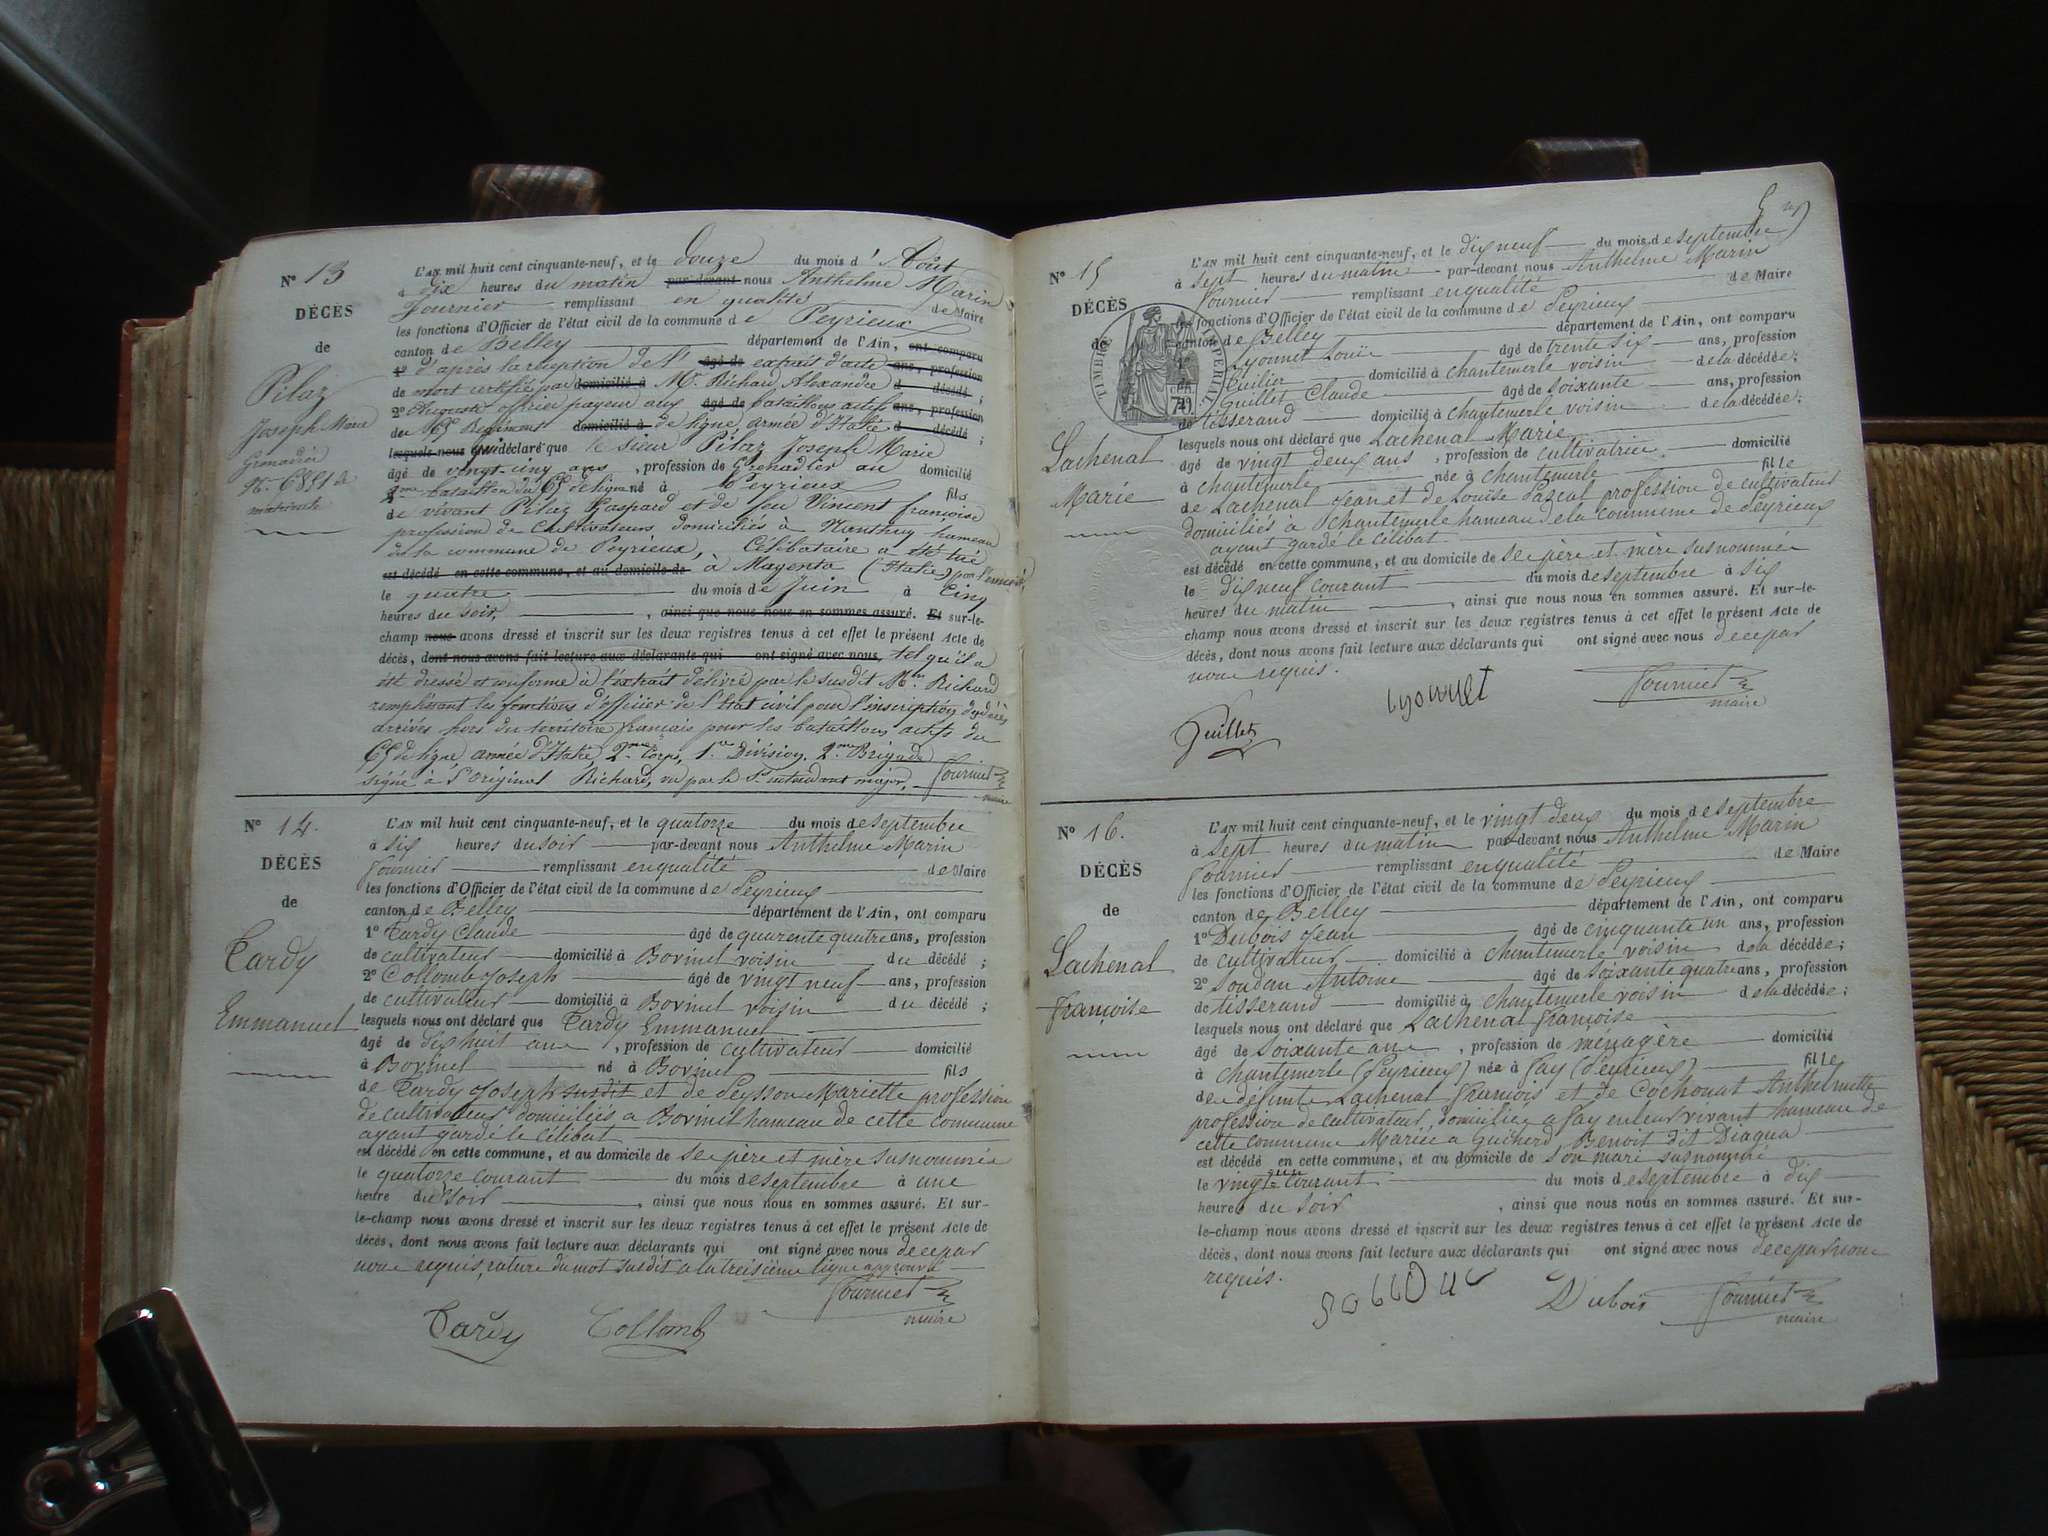 N° 13
DÉCÈS
de
Pilaz
Joseph Marie
Grenadier
N° 6851 de
matricule
L'AN mil huit cent cinquante-neuf, et le douze du mois d'Août
à dix heures du matin par-devant nous Anthelme Marin
Fournier remplissant en qualité de Maire
les fonctions d'Officier de l'état civil de la commune de Peyrieux
canton de Belley département de l'Ain, ont comparu
1° d'après la réception de l' âgé de extrait d'acte ans, profession
de mort certifié par domicilié à Mr. Richard Alexandre d décédé ;
2° Auguste officier payeur aux âgé de bataillons actifs ans, profession
du 65e Regiment domicilié à de ligne armée d'Italie d décédé ;
lesquels nous ont déclaré que le sieur Pilaz Joseph Marie
âgé de vingt cinq ans, profession de Grenadier au domicilié
2me bataillon du 65 de ligne né à Peyrieux fils
de vivant Pilaz Gaspard et de feu Vincent françoise
profession de Cultivateurs domiciliés à Nanthuy hameau
de la commune de Peyrieux, Célibataire a été tué
est décédé en cette commune, et au domicile de à Magenta (Italie) par l'ennemi
le quatre du mois de Juin à Cinq
heures du soir, ainsi que nous nous en sommes assuré. Et sur-le-
champ nous avons dressé et inscrit sur les deux registres tenus à cet effet le présent Acte de
décès, dont nous avons fait lecture aux déclarants qui ont signé avec nous, tel qu'il a
été dressé et conforme à l'extrait délivré par le susdit Mr. Richard
remplissant les fonctions d'officier de l'état civil pour l'inscription des décès
arrivés hors du territoire français pour les bataillons actifs du
65 de ligne armée d'Italie, 2me Corps, 1re Division, 2me Brigade
signé à l'Original Richard, vu par le St intendant major, Fournier
maire
N° 14.
DÉCÈS
de
Tardy
Emmanuel
L'AN mil huit cent cinquante-neuf, et le quatorze du mois de septembre
à six heures du soir par-devant nous Anthelme Marin
Fournier remplissant en qualité de Maire
les fonctions d'Officier de l'état civil de la commune de Peyrieux
canton de Belley département de l'Ain, ont comparu
1° Tardy Claude âgé de quarente quatre ans, profession
de cultivateur domicilié à Bovinel voisin du décédé ;
2° Collomb Joseph âgé de vingt neuf ans, profession
de cultivateur domicilié à Bovinel voisin du décédé ;
lesquels nous ont déclaré que Tardy Emmanuel
âgé de dix huit ans, profession de cultivateur domicilié
à Bovinel né à Bovinel fils
de Tardy Joseph susdit et de Peysson Mariette profession
de cultivateur domiciliés a Bovinel hameau de cette commune
ayant gardé le célibat
est décédé en cette commune, et au domicile de ses père et mère susnommés
le quatorze courant du mois de septembre à une
heure du soir, ainsi que nous nous en sommes assuré. Et sur-
le-champ nous avons dressé et inscrit sur les deux registres tenus à cet effet le présent Acte de
décès, dont nous avons fait lecture aux déclarants qui ont signé avec nous de ce par
nous requis, rature du mot susdit a la treisième ligne approuvé
Fournier
maire
Tardy Collomb
5
N° 15
DÉCÈS
de
Lachenal
Marie
TIMBRE IMPERIAL
L'AN mil huit cent cinquante-neuf, et le dix neuf du mois de septembre
à sept heures du matin par-devant nous Anthelme Marin
Fournier remplissant en qualité de Maire
les fonctions d'Officier de l'état civil de la commune de Peyrieux
canton de Belley département de l'Ain, ont comparu
Lyonnet Louis âgé de trente six ans, profession
tuilier domicilié à chantemerle voisin de la décédée ;
Guillet Claude âgé de soixante ans, profession
de tisserand domicilié à chantemerle voisin de la décédée ;
lesquels nous ont déclaré que Lachenal Marie
âgé de vingt deux ans, profession de cultivatrice domicilié
à chantemerle née à chantemerle fille
de Lachenal Jean et de Louise Pascal profession de cultivateur
domiciliés à chantemerle hameau de la commune de Peyrieux
ayant gardé le célibat.
est décédé en cette commune, et au domicile de ses père et mère susnommés
le dix neuf courant du mois de septembre à six
heures du matin, ainsi que nous nous en sommes assuré. Et sur-le-
champ nous avons dressé et inscrit sur les deux registres tenus à cet effet le présent Acte de
décès, dont nous avons fait lecture aux déclarants qui ont signé avec nous de ce par
nous requis.
Lyonnet Fournier
maire
Guillet
N° 16.
DÉCÈS
de
Lachenal
françoise
L'AN mil huit cent cinquante-neuf, et le vingt deux du mois de septembre
à sept heures du matin par-devant nous Anthelme Marin
Fournier remplissant en qualité de Maire
les fonctions d'Officier de l'état civil de la commune de Peyrieux
canton de Belley département de l'Ain, ont comparu
1° Dubois Jean âgé de cinquante un ans, profession
de cultivateur domicilié à chantemerle voisin de la décédée ;
2° Soudan Antoine âgé de soixante quatre ans, profession
de tisserand domicilié à chantemerle voisin de la décédée ;
lesquels nous ont déclaré que Lachenal françoise
âgé de soixante ans, profession de ménagère domicilié
à chantemerle (Peyrieux) née à Fay (Peyrieux) fille
de défunts Lachenal François et de Cochonat Anthelmette
profession de cultivateur, domiciliés a Fay en leur vivant hameau de
cette commune Mariée a Guicherd Benoit dit Diaqua
est décédé en cette commune, et au domicile de son mari susnommé
le vingt un courant du mois de septembre à dix
heures du soir, ainsi que nous nous en sommes assuré. Et sur-
le-champ nous avons dressé et inscrit sur les deux registres tenus à cet effet le présent Acte de
décès, dont nous avons fait lecture aux déclarants qui ont signé avec nous de ce par nous
requis.
Dubois Fournier
maire